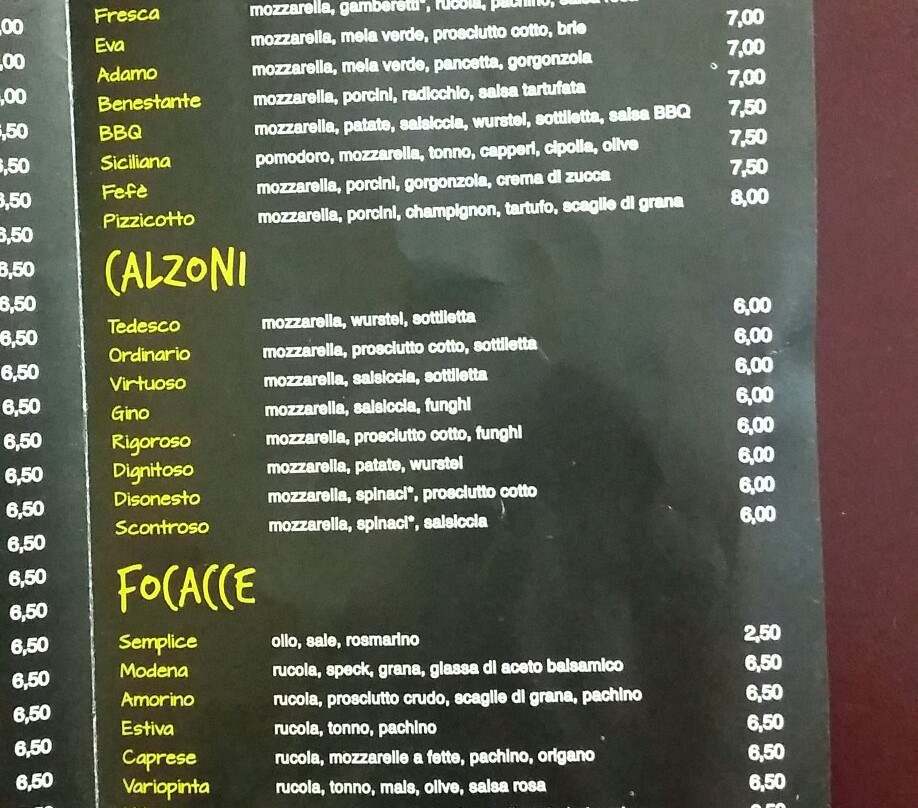 ,00
,00
,00
,50
,50
,50
6,50
6,50
6,50
6,50
6,50
6,50
6,50
6,50
6,50
6,50
6,50
6,50
6,50
6,50
6,50
6,50
6,50
Fresca mozzarella, gamberetti*, rucola, pachino,
Eva mozzarella, mela verde, prosciutto cotto, brie 7,00
Adamo mozzarella, mela verde, pancetta, gorgonzola 7,00
Benestante mozzarella, porcini, radicchio, salsa tartufata 7,00
BBQ mozzarella, patate, salsiccia, wurstel, sottiletta, salsa BBQ 7,50
Siciliana pomodoro, mozzarella, tonno, capperi, cipolla, olive 7,50
Fefè mozzarella, porcini, gorgonzola, crema di zucca 7,50
Pizzicotto mozzarella, porcini, champignon, tartufo, scaglie di grana 8,00
CALZONI
Tedesco mozzarella, wurstel, sottiletta 6,00
Ordinario mozzarella, prosciutto cotto, sottiletta 6,00
Virtuoso mozzarella, salsiccia, sottiletta 6,00
Gino mozzarella, salsiccia, funghi 6,00
Rigoroso mozzarella, prosciutto cotto, funghi 6,00
Dignitoso mozzarella, patate, wurstel 6,00
Disonesto mozzarella, spinaci*, prosciutto cotto 6,00
Scontroso mozzarella, spinaci*, salsiccia 6,00
FOCACCE
Semplice olio, sale, rosmarino 2,50
Modena rucola, speck, grana, glassa di aceto balsamico 6,50
Amorino rucola, prosciutto crudo, scaglie di grana, pachino 6,50
Estiva rucola, tonno, pachino 6,50
Caprese rucola, mozzarelle a fette, pachino, origano 6,50
Variopinta rucola, tonno, mais, olive, salsa rosa 6,50